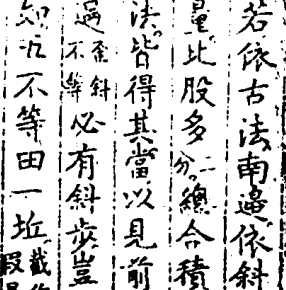 若依古法南邉依斜
量比股多二分緫合積
法皆得其當以見前
邉歪斜不等必有斜步豈
知凢不等田一坵截